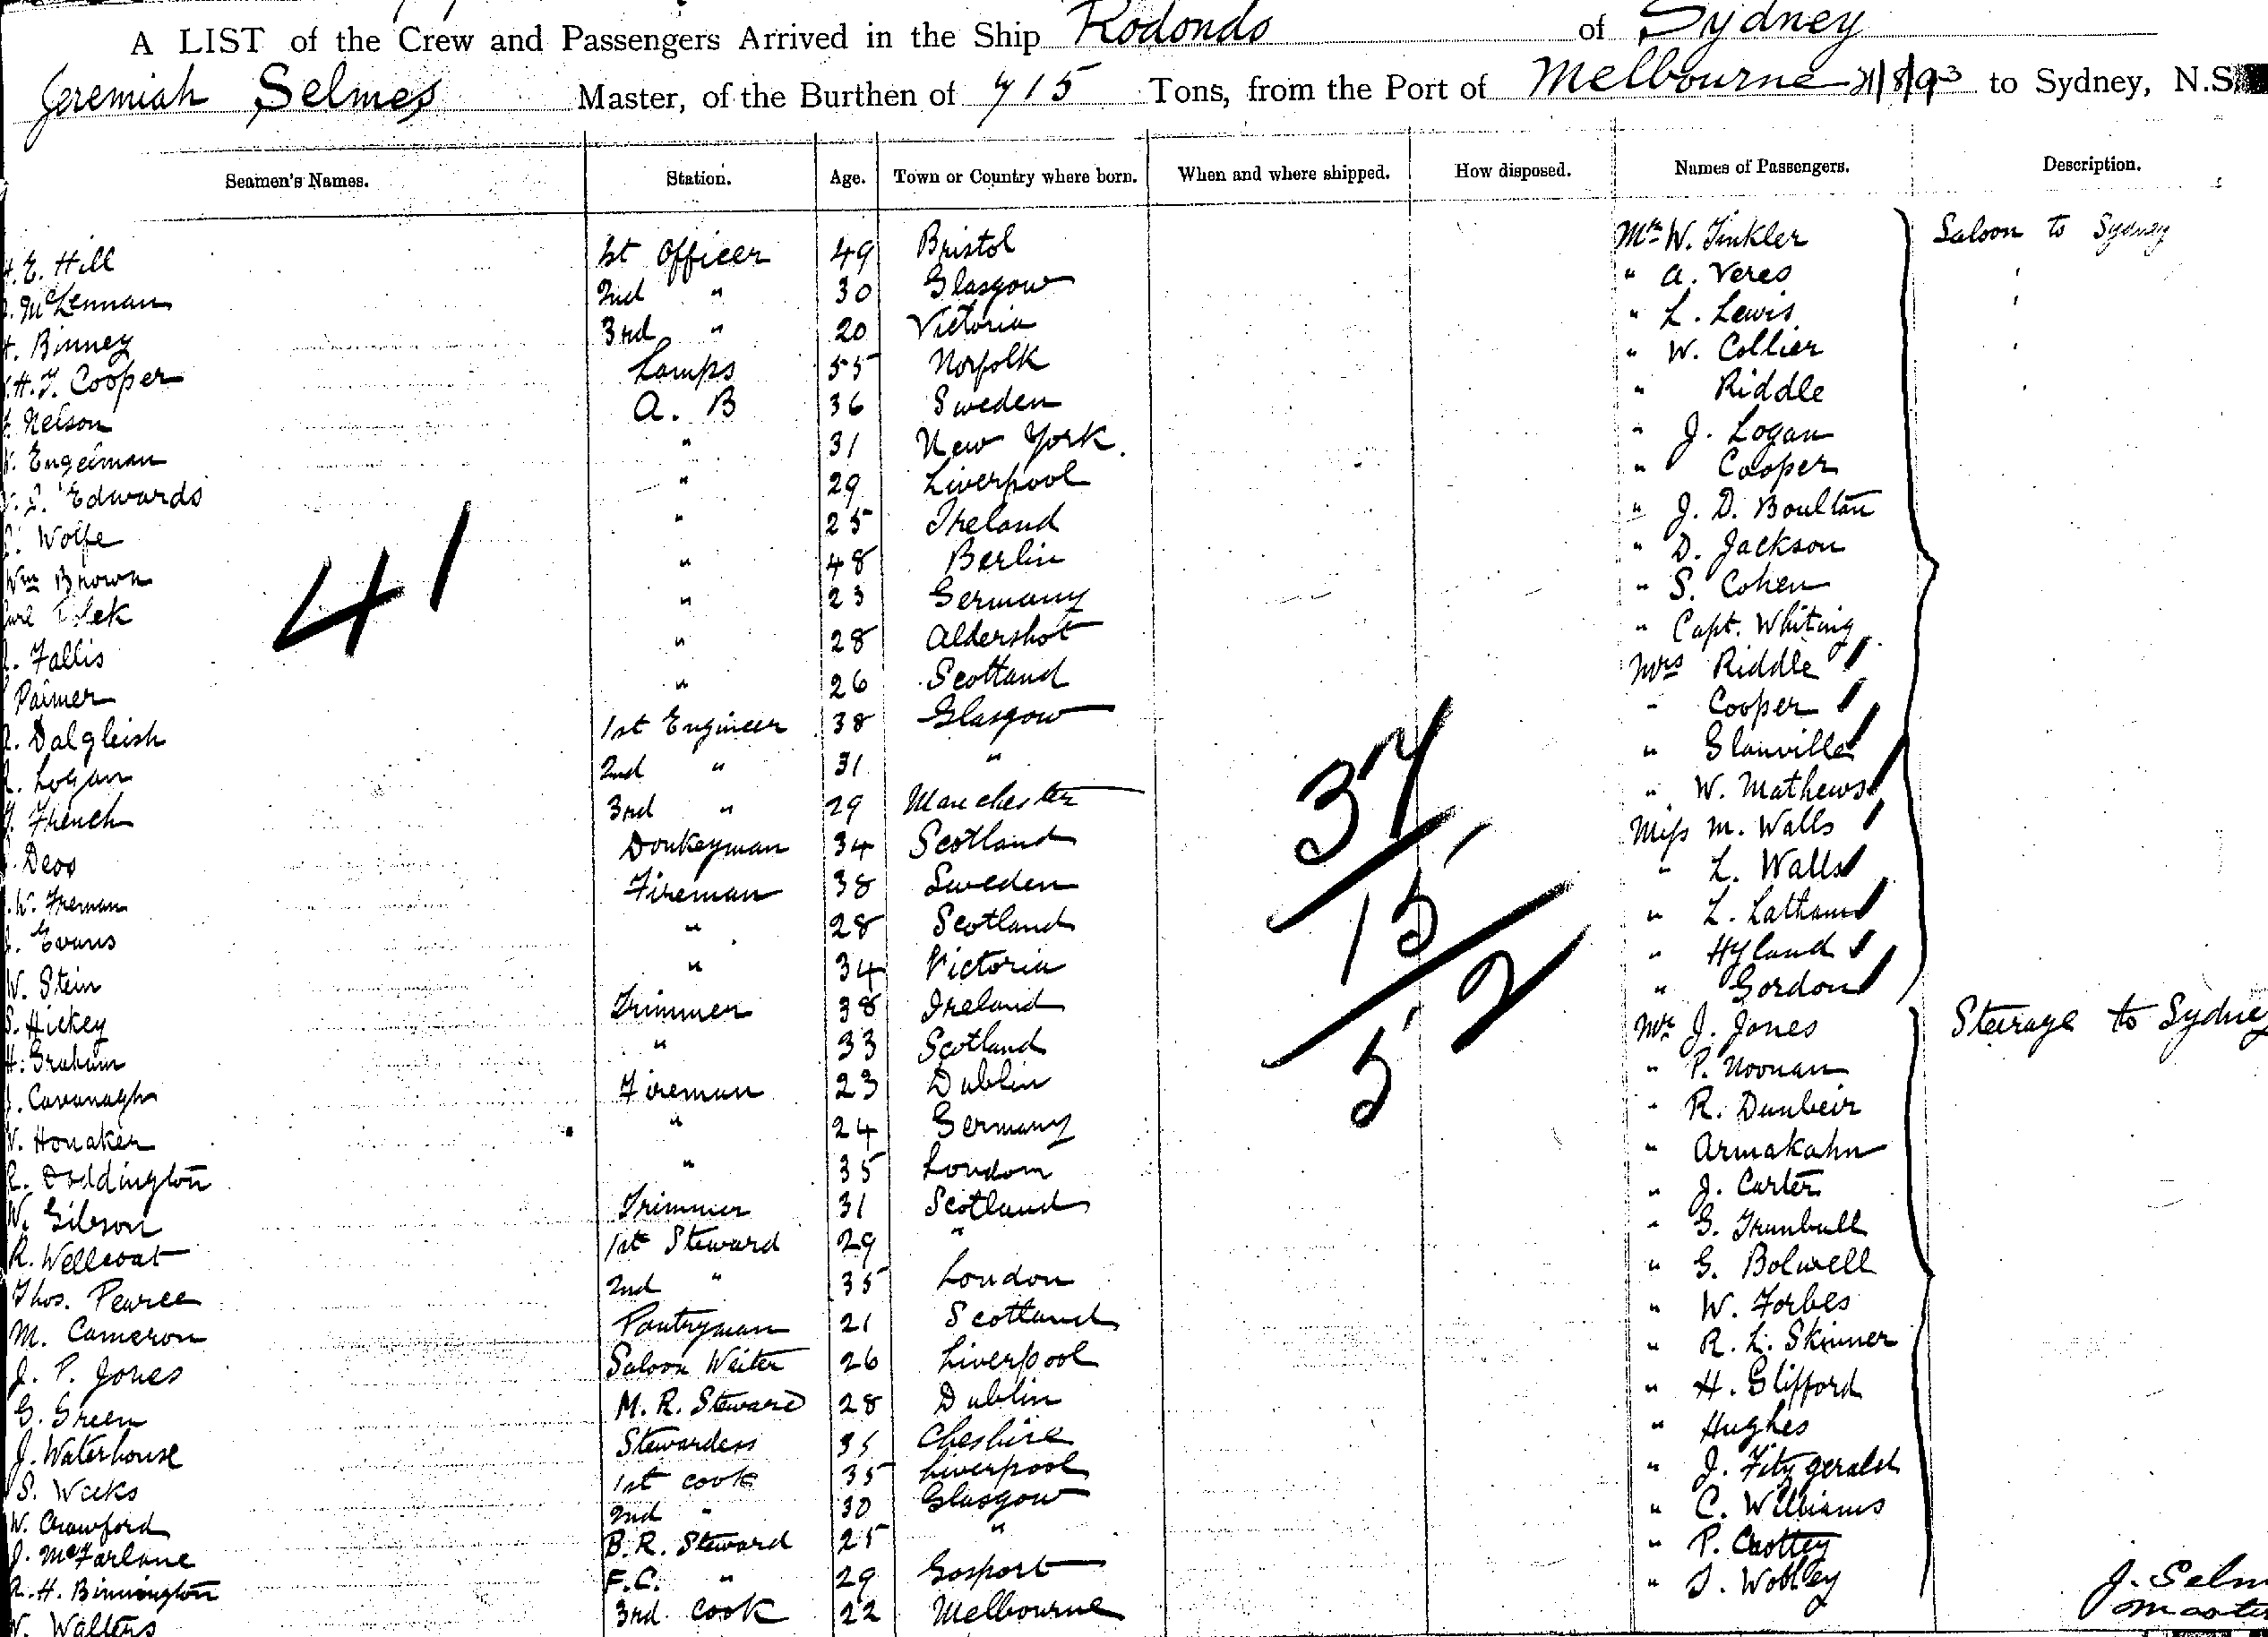 A LIST of the Crew and Passengers Arrived in the Ship Rodondo of Sydney
Jeremiah Selmes Master, of the Burthen of 715 Tons, from the Port of Melbourne 21/8/93 to Sydney, N.S
Seamen's Names. Station. Age. Town or Country where born. When and where shipped. How disposed. Names of Passengers. Description.
E. Hill 1st Officer 49 Bristol Mr W. Tinkler Saloon to Sydney
McLennan 2nd " 30 Glasgow " A. Veres
Binney 3rd " 20 Victoria " L. Lewis
H. J. Cooper Lamps 55 Norfolk " W. Collier
Nelson A. B 36 Sweden " Riddle
Engelman " 31 New York. " J. Logan
Edwards " 29 Liverpool " Cooper
Wolfe " 25 Ireland " J. D. Boulton
Wm Brown " 48 Berlin " D. Jackson
" 23 Germany " S. Cohen
Fallis " 28 Aldershot " Capt. Whiting
Palmer " 26 Scotland Mrs Riddle
Dalgleish 1st Engineer 38 Glasgow " Cooper
Logan 2nd " 31 " " Glanville
French 3rd " 29 Manchester " W. Mathews
Deos Donkeyman 34 Scotland Miss M. Walls
W. Freman Fireman 38 Sweden " L. Walls
Evans " 28 Scotland " L. Latham
W. Stein " 34 Victoria " Hyland
Hickey Trimmer 38 Ireland " Gordon
H. Graham " 33 Scotland Mr J. Jones Steerage to Sydney
J. Cavanagh Fireman 23 Dublin " P. Noonan
W. Honaker " 24 Germany " R. Dunbeir
R. Doddington " 35 London " Armakahn
W. Gibson Trimmer 31 Scotland " J. Carter
R. Wellcoat 1st Steward 29 " " G. Trumbull
Thos. Pearce 2nd " 35 London " G. Bolwell
M. Cameron Pantryman 21 Scotland " W. Forbes
J. P. Jones Saloon Waiter 26 Liverpool " R. L. Skinner
G. Green M. R. Steward 28 Dublin " H. Glifford
J. Waterhouse Stewardess 35 Cheshire " Hughes
S. Weeks 1st cook 35 Liverpool " J. Fitzgerald
W. Crawford 2nd " 30 Glasgow " C. Williams
J. McFarlane B. R. Steward 25 " " P. Crottey
R. H. Binnington F. C. " 29 Gosport
W. Walters 3rd cook 22 Melbourne
41
37
15
5 2
J. Selm
Maste